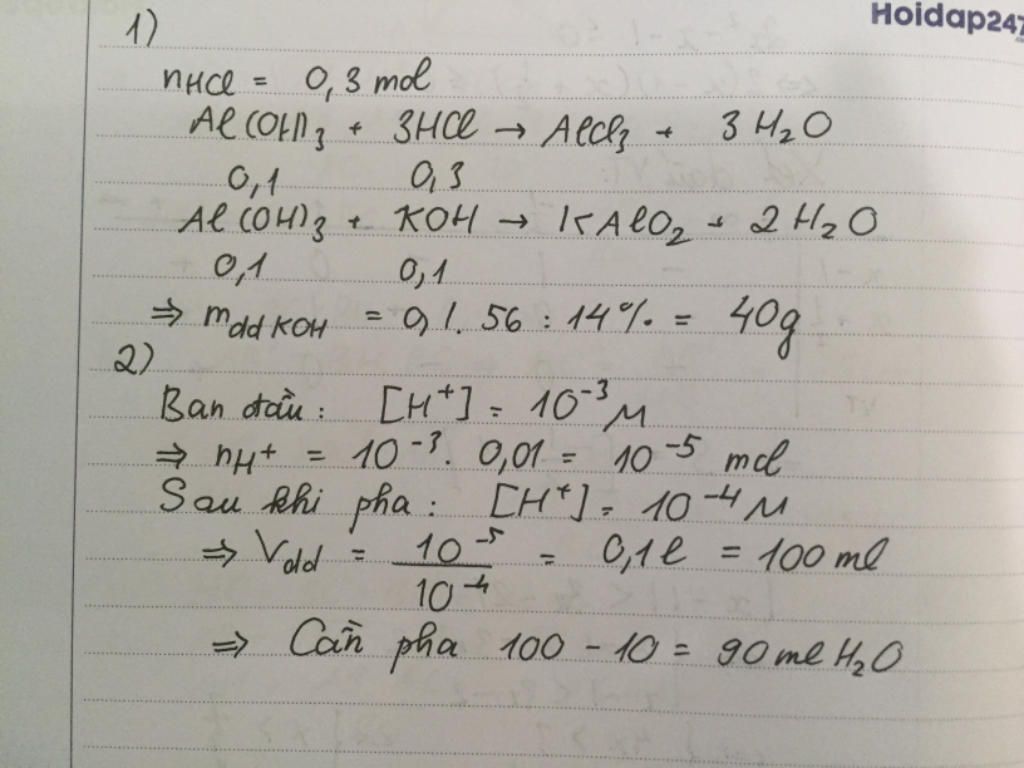 Hoidap247
1)
nHCl = 0,3 mol
Al(OH)₃ + 3HCl → AlCl₃ + 3H₂O
0,1 0,3
Al(OH)₃ + KOH → KAlO₂ + 2H₂O
0,1 0,1
⇒ mdd KOH = 0,1. 56 : 14% = 40g
2)
Ban đầu : [H⁺] = 10⁻³ M
⇒ nH⁺ = 10⁻³. 0,01 = 10⁻⁵ mol
Sau khi pha : [H⁺] = 10⁻⁴ M
⇒ Vdd = 10⁻⁵ / 10⁻⁴ = 0,1 l = 100 ml
⇒ Cần pha 100 - 10 = 90 ml H₂O